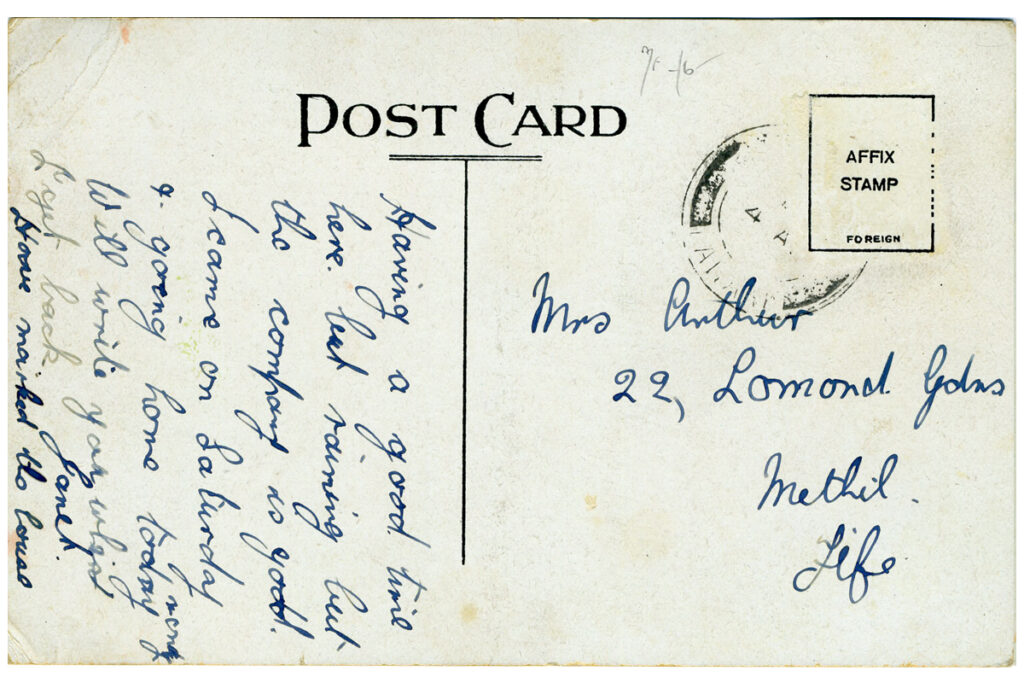 POST CARD
AFFIX
STAMP
FOREIGN
Having a good time
here. but raining but
the company is good.
I came on Saturday
&. going home today
Will write you when
I get back Janet.
Have marked the house
Mrs Arthur
22, Lomond Gdns
Methil.
Fife